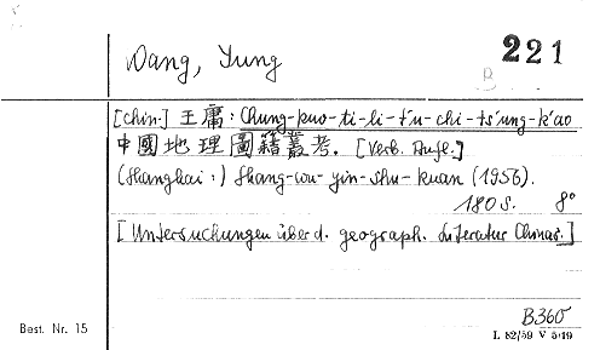 Wang, Yung
221
B
[chin.] 王庸: Chung-kuo-ti-li-t'u-chi-ts'ung-k'ao
中國地理圖籍叢考. [Verb. Aufl.]
(Shanghai:) Shang-wu-yin-shu-kuan (1956).
180 S. 8°
[Untersuchungen über d. geograph. Literatur Chinas.]
B360
Best. Nr. 15
L 82/59 V 5/19